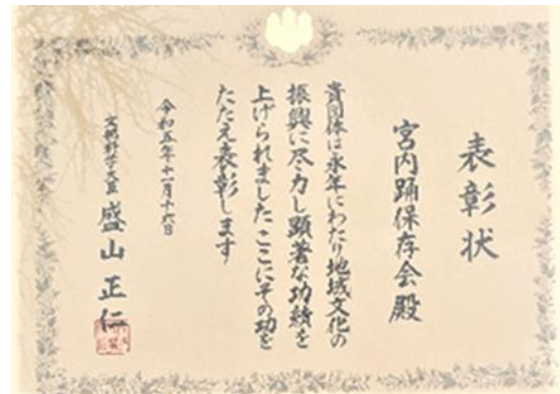 表彰状
宮内踊保存会殿
貴団体は永年にわたり地域文化の
振興に尽力し顕著な功績を
上げられました ここにその功を
たたえ表彰します
令和五年十一月十六日
文部科学大臣 盛山正仁